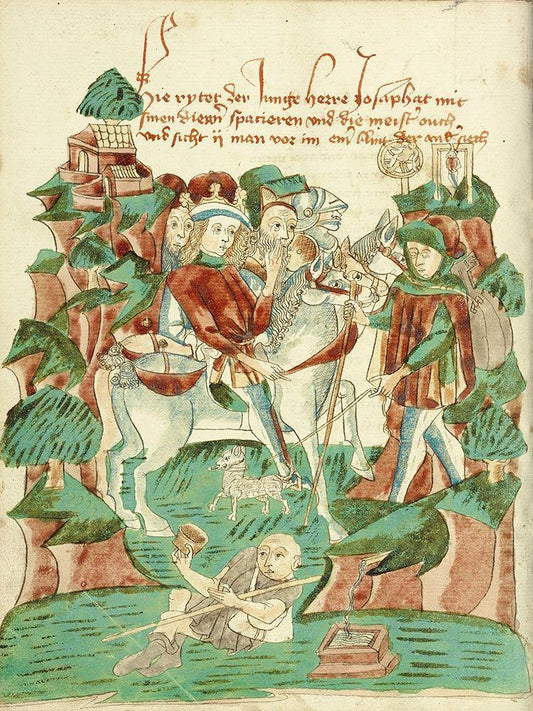 Hie rytet der Junge herre Josaphat mit
sinen spatieren vnd die meist ouch
vnd sicht ij man vor im der and siech